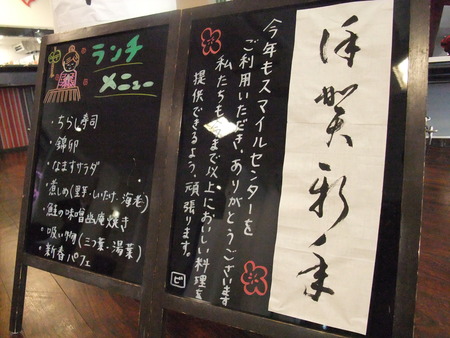 ランチ
メニュー
・ちらし寿司
・錦卵
・なますサラダ
・煮しめ(里芋・しいたけ・海老)
・鮭の味噌幽庵焼き
・吸い物(三つ葉・湯葉)
・新春パフェ
恭賀新年
今年もスマイルセンターを
ご利用いただき、ありがとうございます
私たちも今まで以上においしい料理を
提供できるよう、頑張ります。
ピ